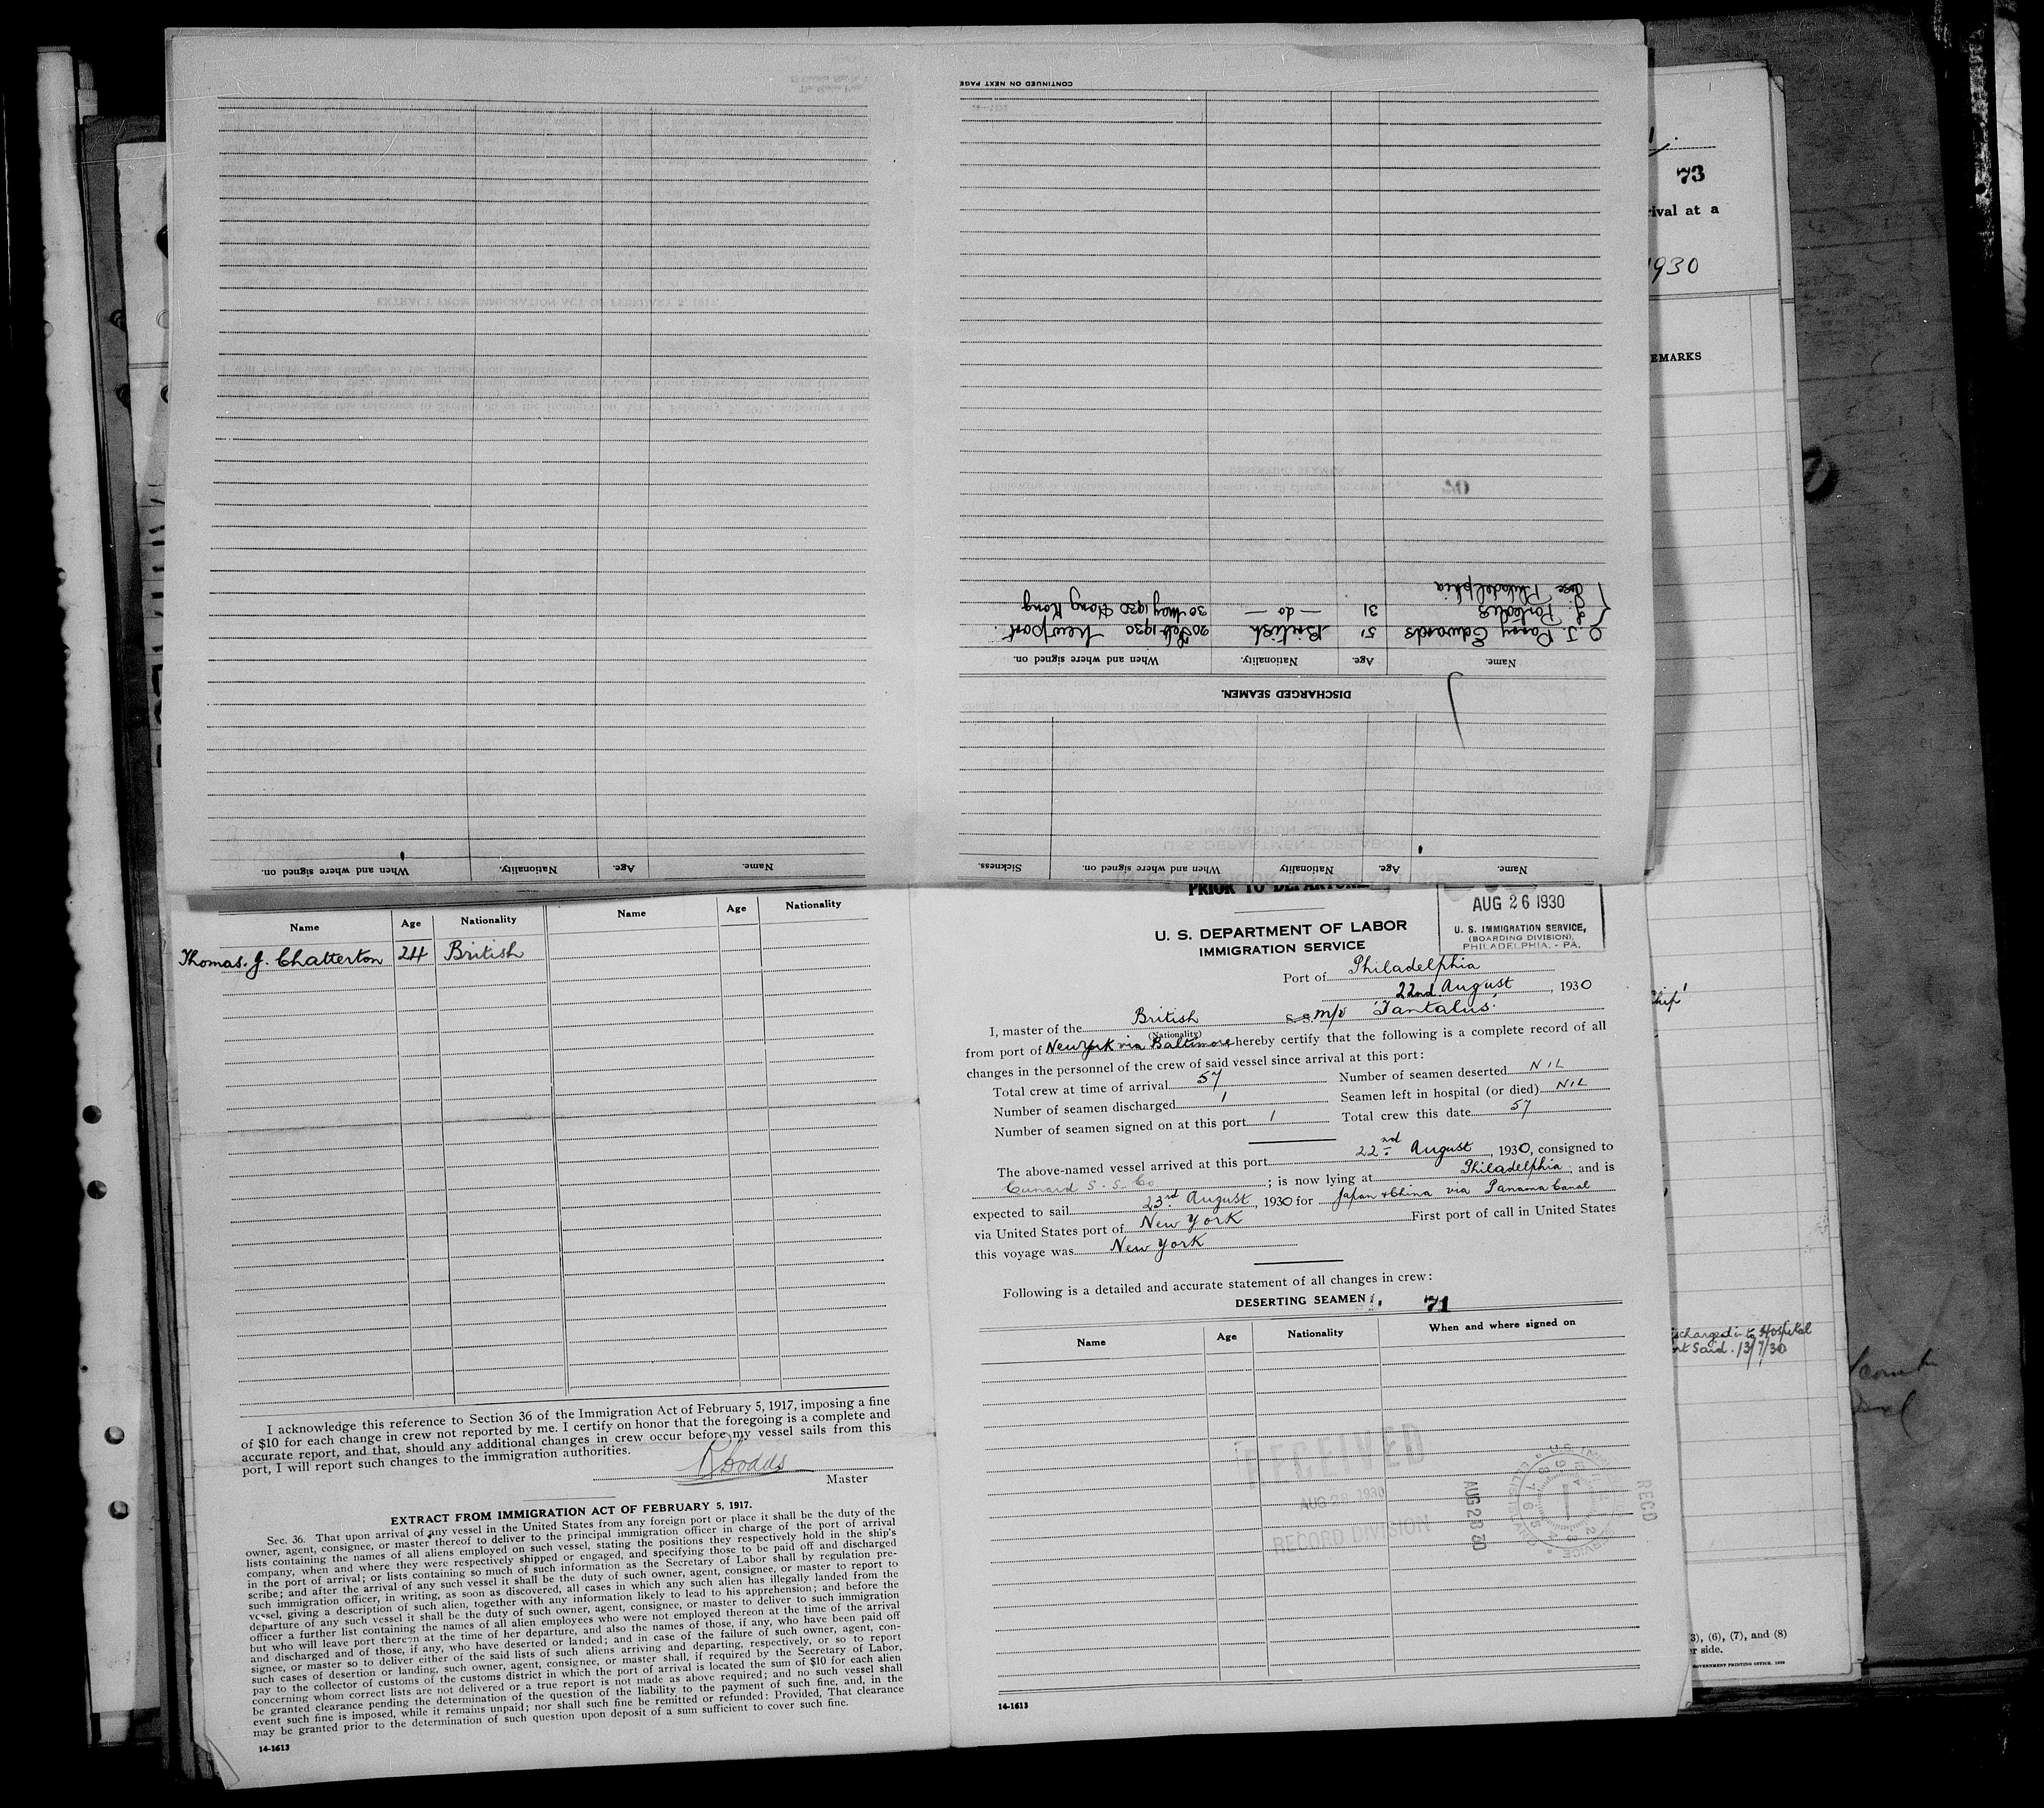 CONTINUED ON NEXT PAGE
DISCHARGED SEAMEN.
Name. Age. Nationality. When and where signed on.
J. Parry Edwards 51 British 20 Feb 1930 Newport.
31 — do — 30 May 1930 Hong Kong
Philadelphia
Name. Age. Nationality When and where signed on. Sickness.
Name. Age. Nationality. When and where signed on.
73
rival at a
1930
EMARKS
Ship'
ischarged into Hospital
ort Said. 13/7/30
3), (6), (7), and (8)
r side.
GOVERNMENT PRINTING OFFICE. 1929
Name Age Nationality Name Age Nationality
Thomas. J. Chatterton 24 British
I acknowledge this reference to Section 36 of the Immigration Act of February 5, 1917, imposing a fine
of $10 for each change in crew not reported by me. I certify on honor that the foregoing is a complete and
accurate report, and that, should any additional changes in crew occur before my vessel sails from this
port, I will report such changes to the immigration authorities.
R Dodds
Master
EXTRACT FROM IMMIGRATION ACT OF FEBRUARY 5, 1917.
Sec. 36. That upon arrival of any vessel in the United States from any foreign port or place it shall be the duty of the
owner, agent, consignee, or master thereof to deliver to the principal immigration officer in charge of the port of arrival
lists containing the names of all aliens employed on such vessel, stating the positions they respectively hold in the ship's
company, when and where they were respectively shipped or engaged, and specifying those to be paid off and discharged
in the port of arrival; or lists containing so much of such information as the Secretary of Labor shall by regulation pre-
scribe; and after the arrival of any such vessel it shall be the duty of such owner, agent, consignee, or master to report to
such immigration officer, in writing, as soon as discovered, all cases in which any such alien has illegally landed from the
vessel, giving a description of such alien, together with any information likely to lead to his apprehension; and before the
departure of any such vessel it shall be the duty of such owner, agent, consignee, or master to deliver to such immigration
officer a further list containing the names of all alien employees who were not employed thereon at the time of the arrival
but who will leave port thereon at the time of her departure, and also the names of those, if any, who have been paid off
and discharged and of those, if any, who have deserted or landed; and in case of the failure of such owner, agent, con-
signee, or master so to deliver either of the said lists of such aliens arriving and departing, respectively, or so to report
such cases of desertion or landing, such owner, agent, consignee, or master shall, if required by the Secretary of Labor,
pay to the collector of customs of the customs district in which the port of arrival is located the sum of $10 for each alien
concerning whom correct lists are not delivered or a true report is not made as above required; and no such vessel shall
be granted clearance pending the determination of the question of the liability to the payment of such fine, and, in the
event such fine is imposed, while it remains unpaid; nor shall such fine be remitted or refunded: Provided, That clearance
may be granted prior to the determination of such question upon deposit of a sum sufficient to cover such fine.
14-1613
PRIOR TO DEPARTURE
AUG 26 1930
U. S. IMMIGRATION SERVICE,
(BOARDING DIVISION),
PHILADELPHIA, - PA.
U. S. DEPARTMENT OF LABOR
IMMIGRATION SERVICE
Port of Philadelphia
22nd August, 1930
I, master of the British S.S. m/v 'Tantalus'
(Nationality)
from port of New York via Baltimore hereby certify that the following is a complete record of all
changes in the personnel of the crew of said vessel since arrival at this port:
Total crew at time of arrival 57 Number of seamen deserted NIL
Number of seamen discharged 1 Seamen left in hospital (or died) NIL
Number of seamen signed on at this port 1 Total crew this date 57
The above-named vessel arrived at this port 22nd August, 1930, consigned to
Cunard S. S. Co ; is now lying at Philadelphia, and is
expected to sail 23rd August, 1930 for Japan & China via Panama Canal
via United States port of New York First port of call in United States
this voyage was New York
Following is a detailed and accurate statement of all changes in crew:
DESERTING SEAMEN
71
Name Age Nationality When and where signed on
RECEIVED
AUG 28 1930
RECORD DIVISION
AUG 28 30
RECD
14-1613